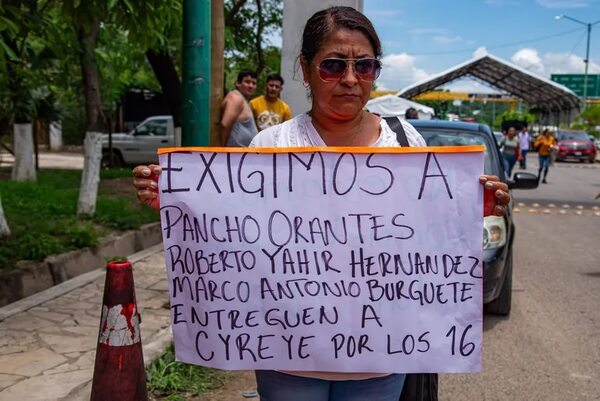 EXIGIMOS A
PANCHO ORANTES
ROBERTO YAHIR HERNANDEZ
MARCO ANTONIO BURGUETE
ENTREGUEN A
CYREYE POR LOS 16